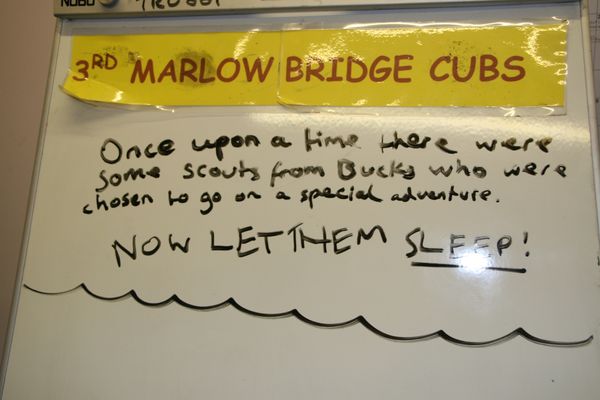 NOBO
3RD MARLOW BRIDGE CUBS
Once upon a time there were
some scouts from Bucks who were
chosen to go on a special adventure.
NOW LET THEM SLEEP!